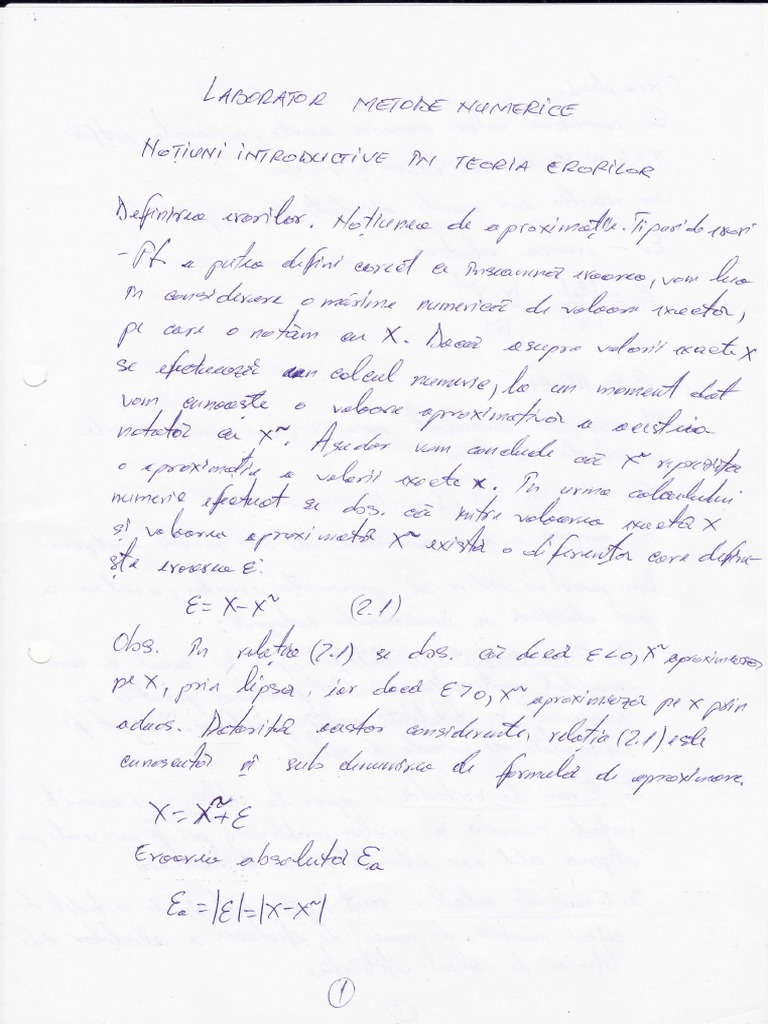 LABORATOR METODE NUMERICE
NOȚIUNI INTRODUCTIVE ÎN TEORIA ERORILOR
Definirea erorilor. Noțiunea de aproximație. Tipuri de erori
- Pt. a putea defini corect ce înseamnă eroarea, vom lua
în considerare o mărime numerică de valoare exactă,
pe care o notăm cu X. Dacă asupra valorii exacte X
se efectuează un calcul numeric, la un moment dat
vom cunoaște o valoare aproximativă a acesteia
notată cu X~. Așadar vom conclude că X~ reprezintă
o aproximație a valorii exacte X. În urma calculului
numeric efectuat se obs. că între valoarea exactă X
și valoarea aproximată X~ există o diferență care define-
ște eroarea ε:
ε = X - X~ (2.1)
Obs. În relația (2.1) se obs. că dacă ε<0, X~ aproximează
pe X, prin lipsă, iar dacă ε>0, X~ aproximează pe X prin
adaos. Datorită acestor considerente, relația (2.1) este
cunoscută și sub denumirea de formulă de aproximare.
X = X~ + ε
Eroarea absolută εa
εa = |ε| = |X - X~|
1